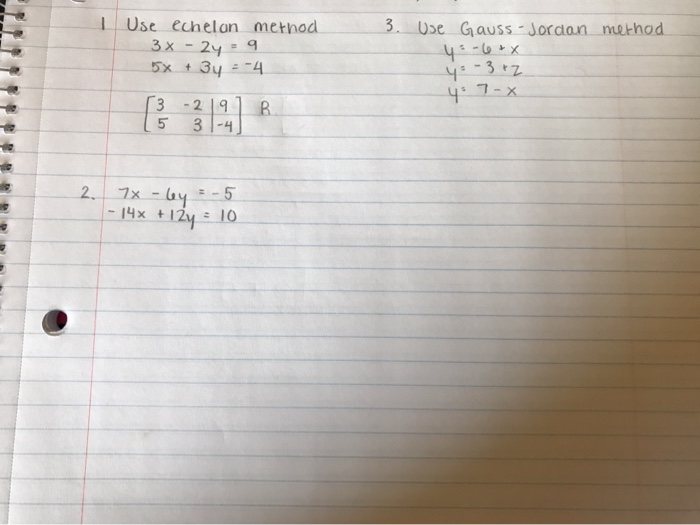 1 Use echelon method
3x - 2y = 9
5x + 3y = -4
[3 -2 | 9] R
[5 3 | -4]
2. 7x - 6y = -5
-14x + 12y = 10
3. Use Gauss-Jordan method
y = -6 + x
y = -3 + z
y = 7 - x